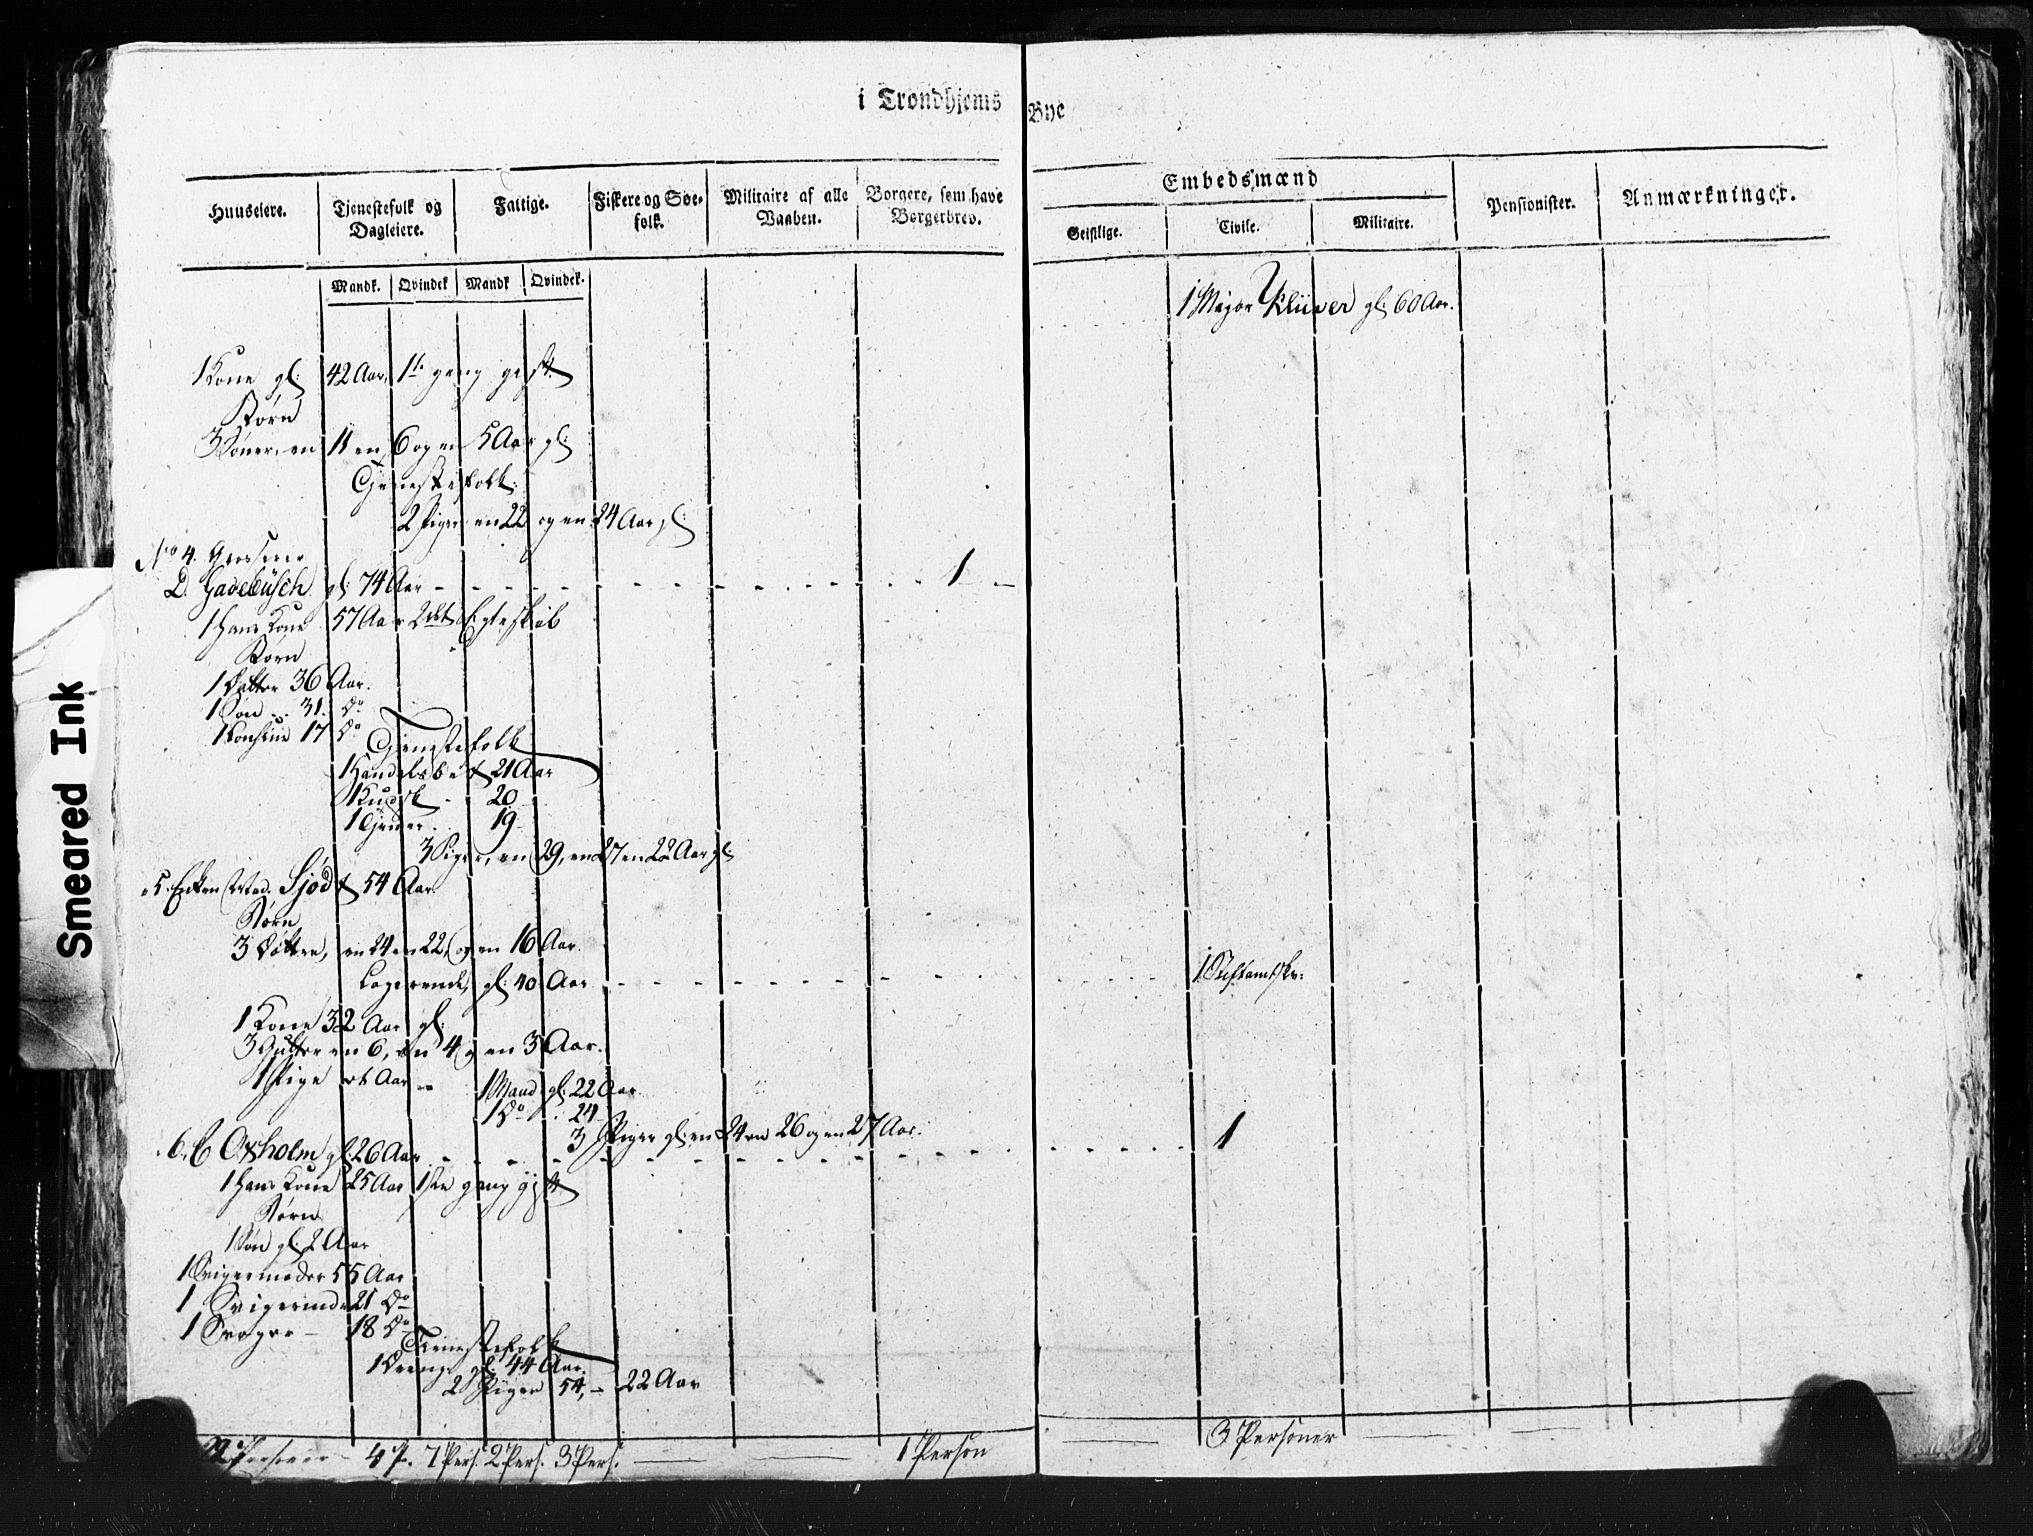 i Trondhjems Bye
Huuseiere.
Tjenestefolk og Dagleiere.
Fattige.
Fiskere og Søefolk.
Militaire af alle Vaaben.
Borgere, som have Borgerbrev.
Embedsmænd
Geistlige.
Civile.
Militaire.
Pensionister.
Anmærkninger.
Mandk. Qvindek Mandk Qvindek.
1 Major Klüwer gl: 60 Aar.
1 Kone gl: 42 Aar, 1te gang gift
Børn
3 Sønner, en 11 en 6 og en 5 Aar gl:
Tjenestefolk:
2 Piger en 22 og en 24 Aar gl:
No 4. Grosserer
D. Gadebusch gl: 74 Aar - - - 1 -
1 Hans Kone 57 Aar 2det Egteskab
Børn
1 Datter 36 Aar.
1 Søn .. 31. Do
1 17 Do
Tjenestefolk
1 Handelsbet 21 Aar
1 Kudsk - 20
1 Tjener . 19
3 Piger, en 29, en 27 en 22 Aar gl:
" 5. Enken Mad. Sjødt 54 Aar
Børn
3 Døttre, en 24 en 22, og en 16 Aar
Logerende, gl: 40 Aar - - - 1 Stiftamtskr:
1 Kone 32 Aar gl:
3 Gutter en 6, en 4 og en 3 Aar.
1 Pige Aar -
1 Mand gl: 22 Aar
1 Do . 24
3 Piger gl: en 24 en 26 og en 27 Aar.
" 6. C Oxholm gl: 26 Aar - - - 1
1 Hans Kone 25 Aar 1ste gang gift
Børn
1 Søn gl. 2 Aar
1 Svigermoder 55 Aar
1 Svigerinde 21 Do
1 Svoger - 18 Do
Tienestefolk
1 Dreng gl. 44 Aar.
2 Piger 54, - 22 Aar
Personer - 4 P. 7 Pers. 2 Pers. 3 Pers. 1 Person 3 Personer
Smeared Ink